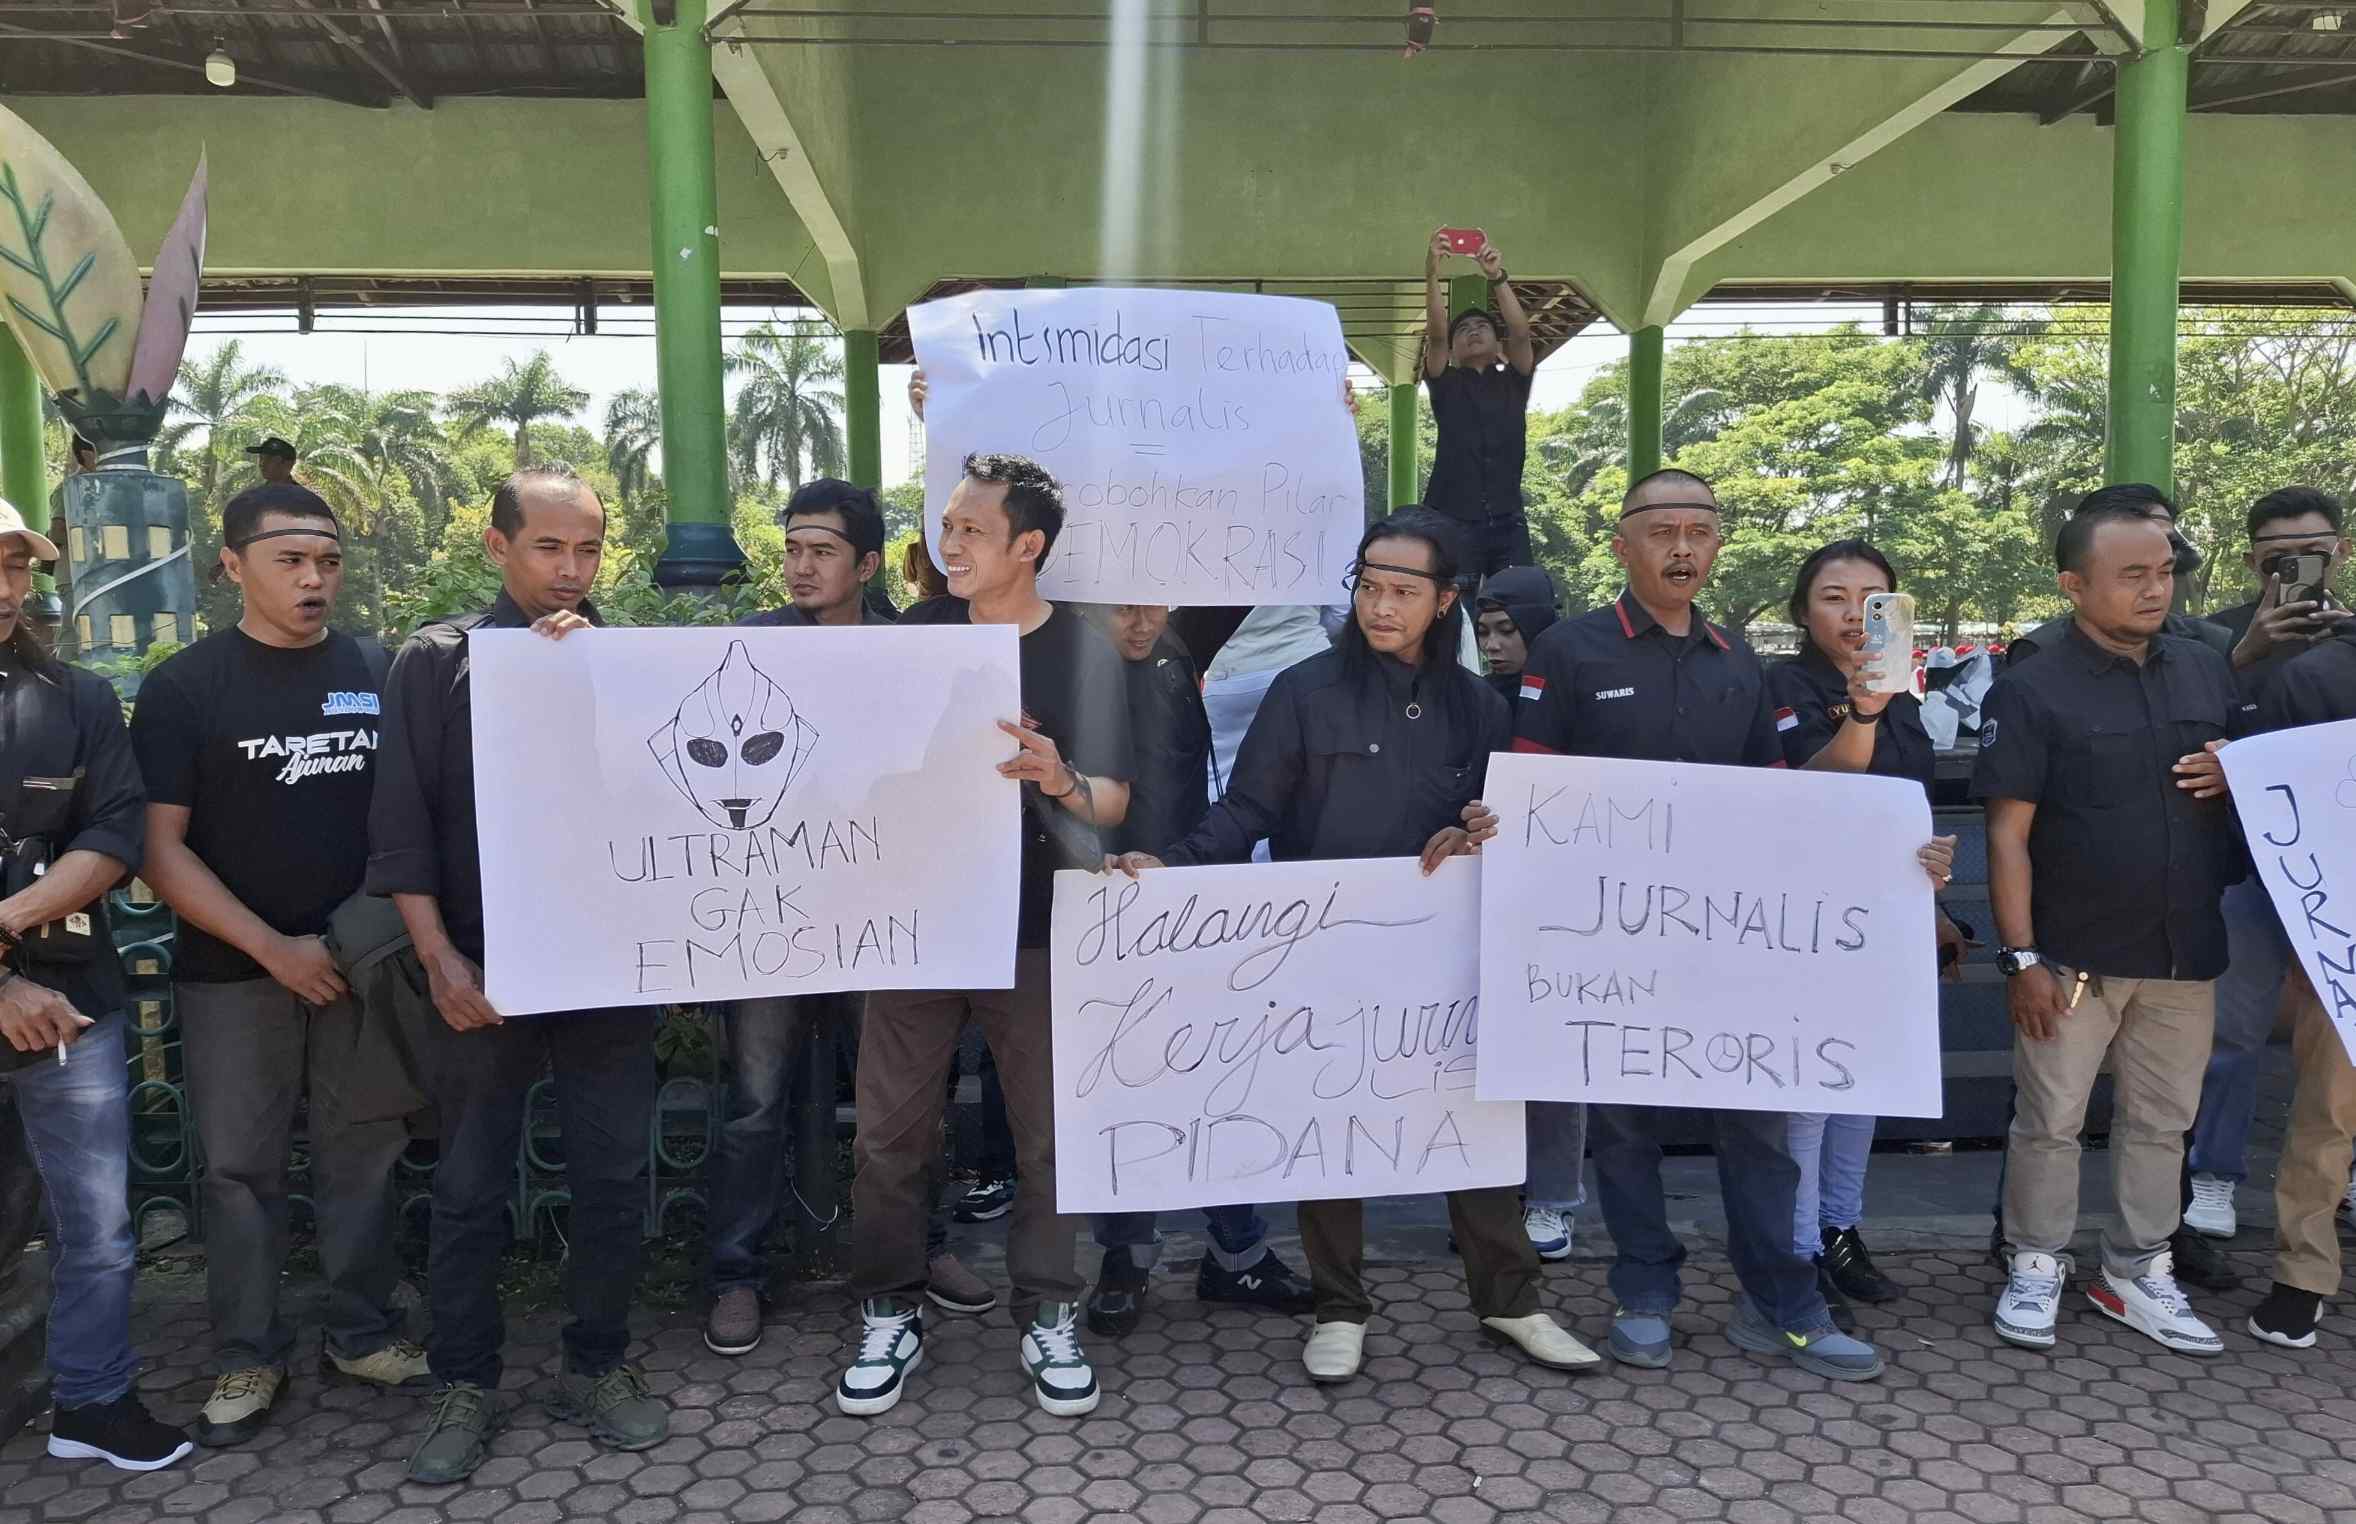 Intimidasi Terhadap
Jurnalis
=
robohkan Pilar
DEMOKRASI
JMSI
TARETAN
Ajunan
ULTRAMAN
GAK
EMOSIAN
Halangi
Kerja jurn
Lis
PIDANA
SUWARIS
KAMi
JURNALiS
BUKAN
TERORiS
JURNA